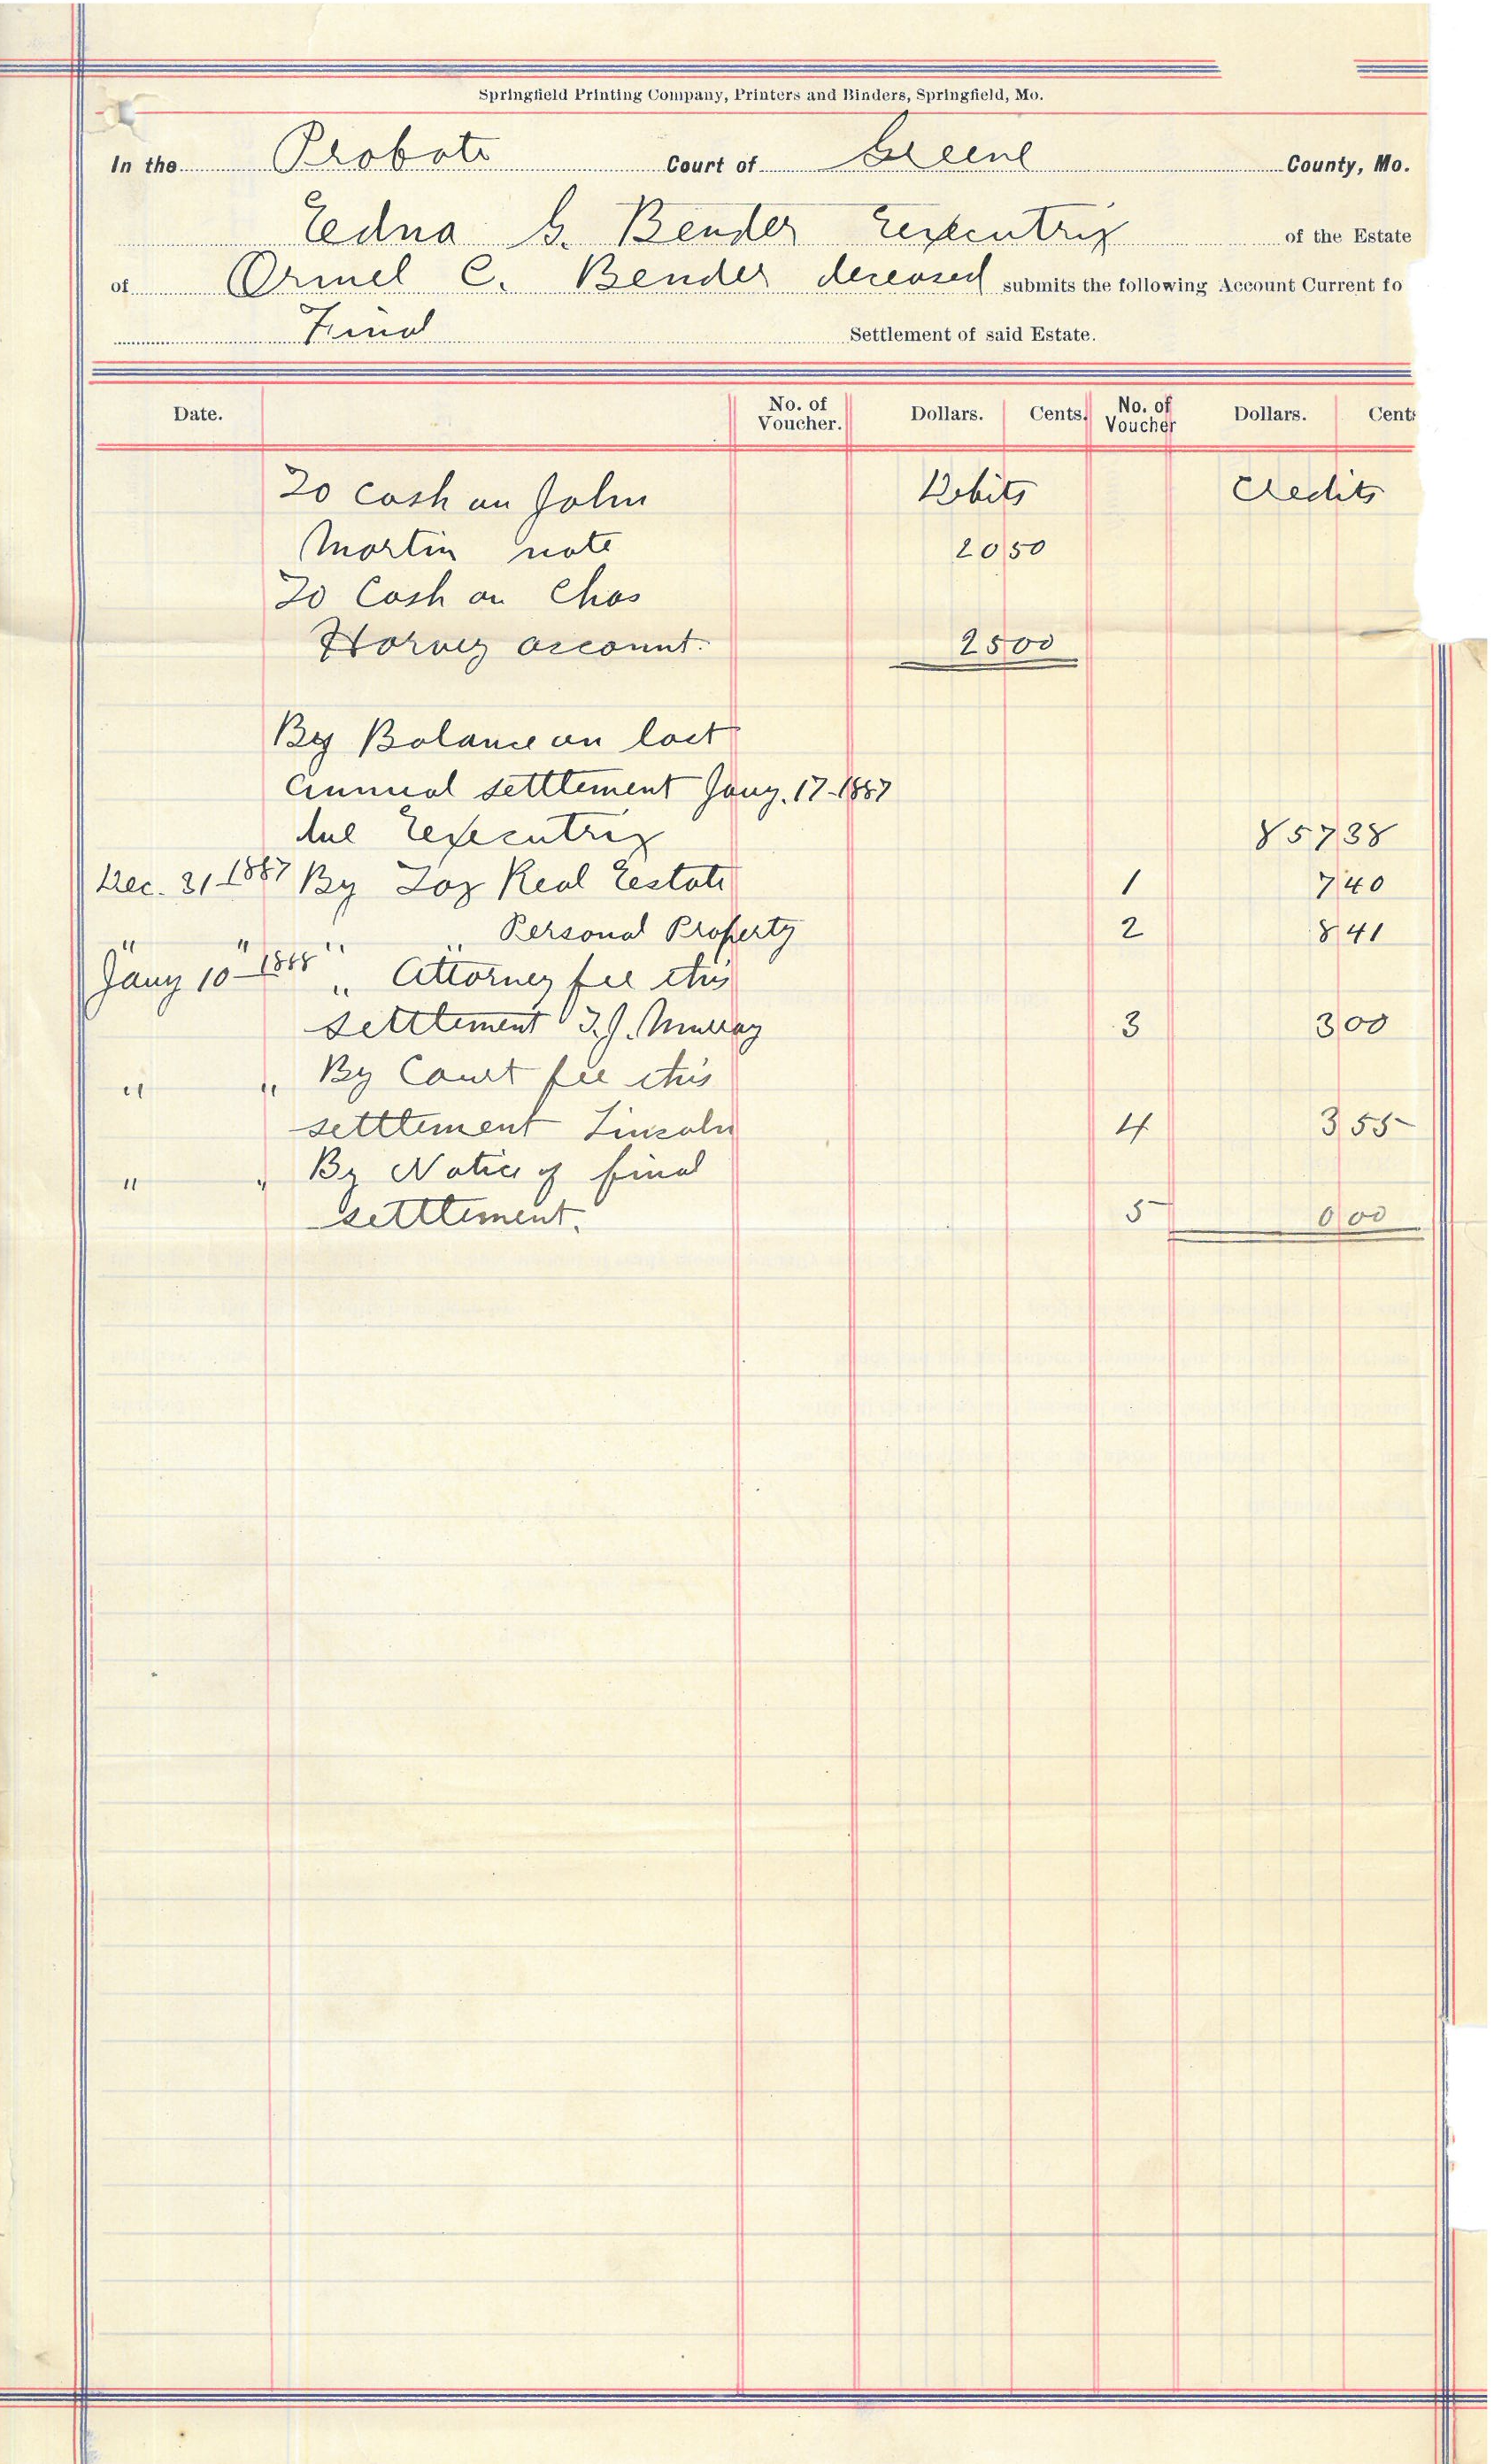 Springfield Printing Company, Printers and Binders, Springfield, Mo.
In the Probate Court of Greene County, Mo.
Edna G. Bender Executrix of the Estate
of Ormel C. Bender deceased submits the following Account Current fo
Final Settlement of said Estate.
Date. No. of Voucher. Dollars. Cents. No. of Voucher Dollars. Cent
To Cash on John Debits Credits
Martin note 20 50
To Cash on Chas
Harvey account. 25 00
By Balance on last
annual settlement Jany. 17-1887
due Executrix 857 38
Dec. 31-1887 By Tax Real Estate 1 7 40
" " " " Personal Property 2 8 41
Jany 10-1888 " Attorney fee this
settlement T.J. Murray 3 3 00
" " By Court fee this
settlement Lincoln 4 3 55
" " By Notice of final
settlement. 5 0 00